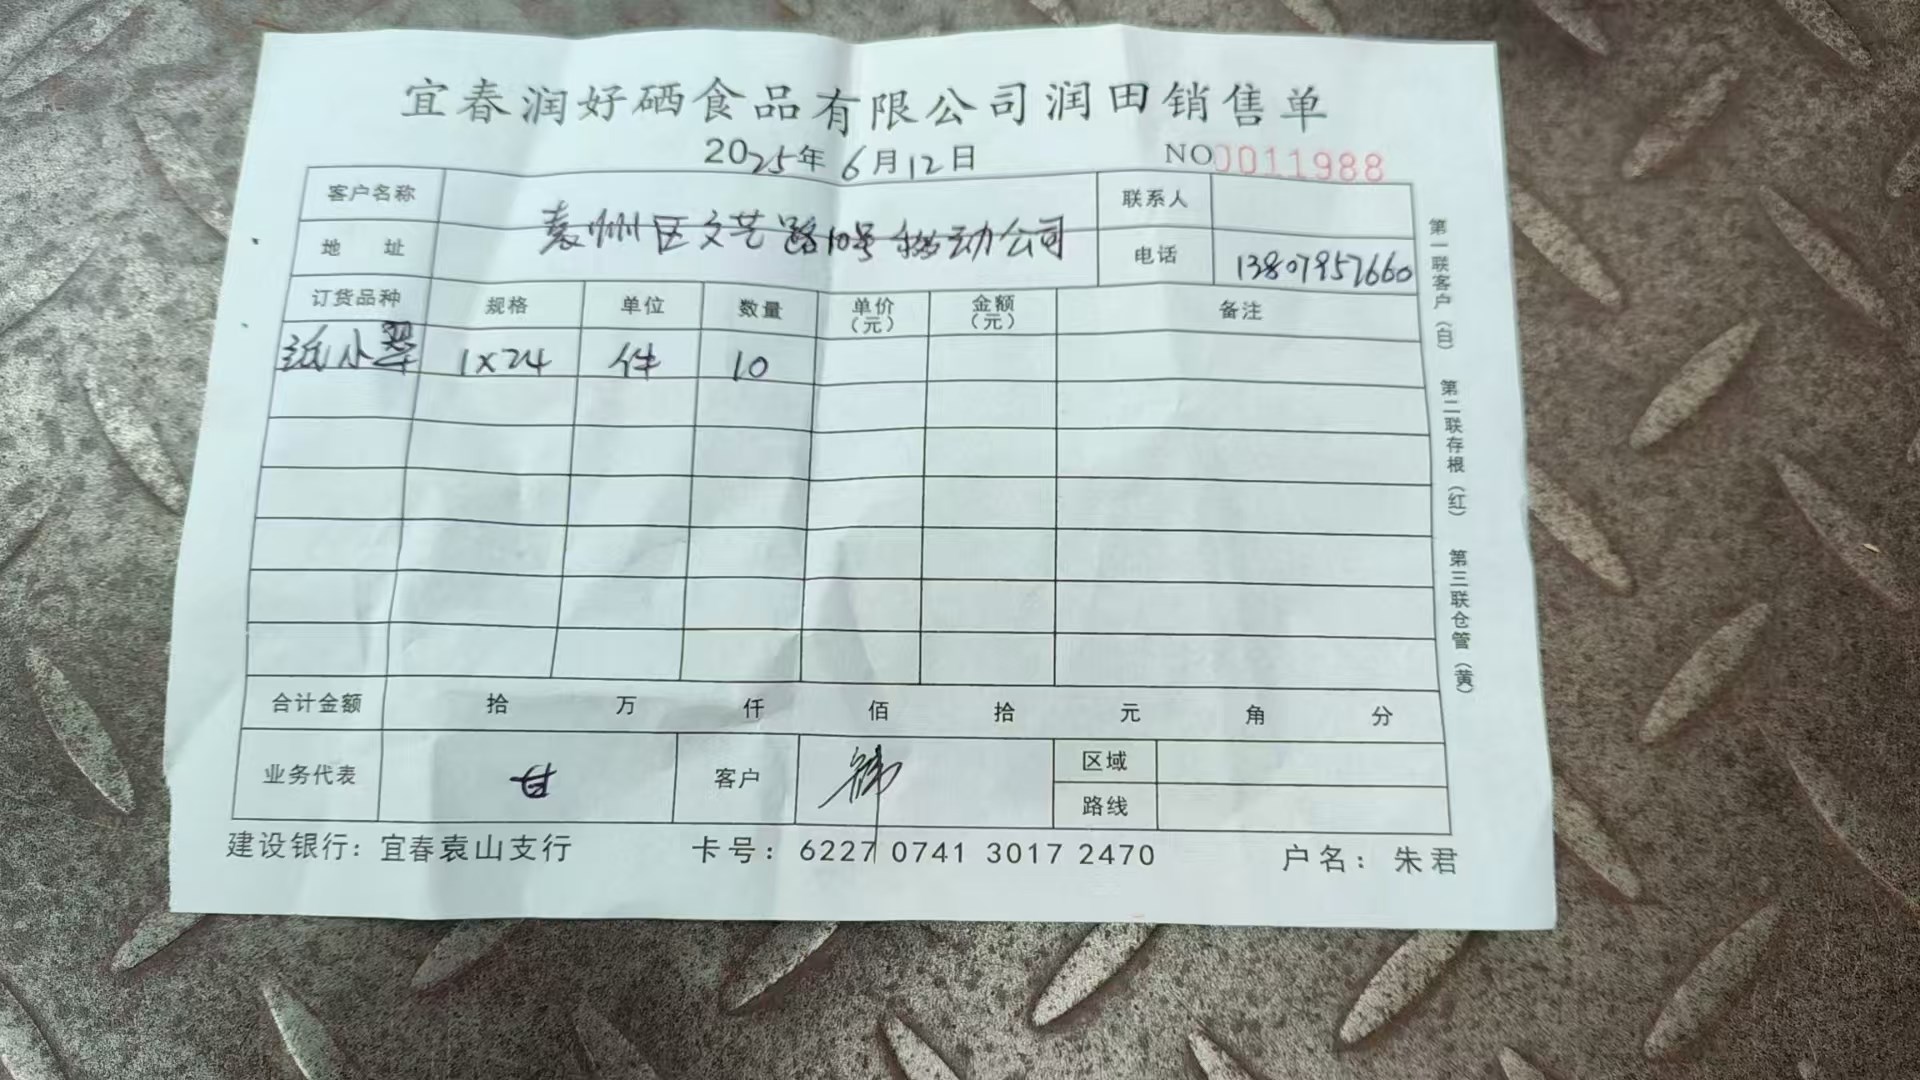 宜春润好硒食品有限公司润田销售单
2025年6月12日 NO 0011988
客户名称 联系人
袁州区文艺路10号移动公司
地 址 电话 13807957660
订货品种 规格 单位 数量 单价（元） 金额（元） 备注
小翠 1×24 件 10
合计金额 拾 万 仟 佰 拾 元 角 分
业务代表 甘 客户 区域
路线
建设银行：宜春袁山支行 卡号：6227 0741 3017 2470 户名：朱君
第一联客户（白） 第二联存根（红） 第三联仓管（黄）